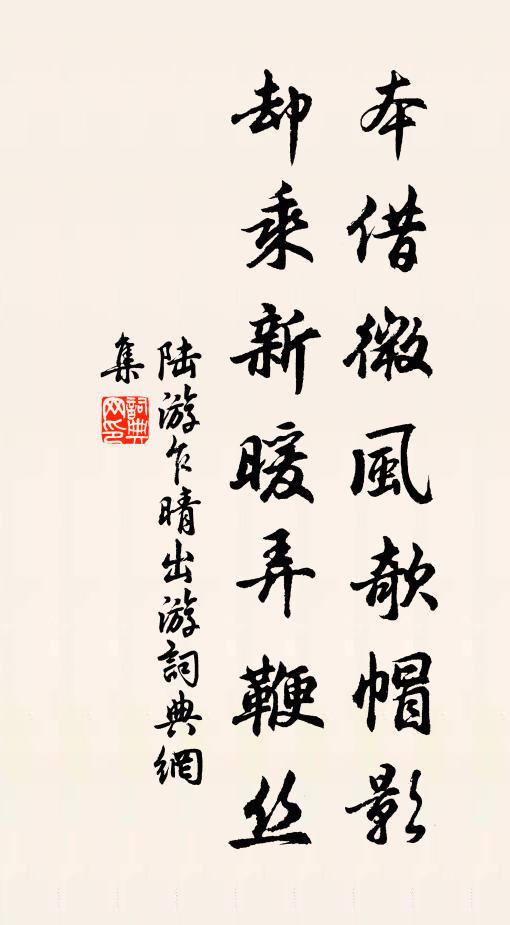 本借微風欹帽影
却乘新暖弄鞭丝
陆游乍晴出游詞典網
集
詞典
网印